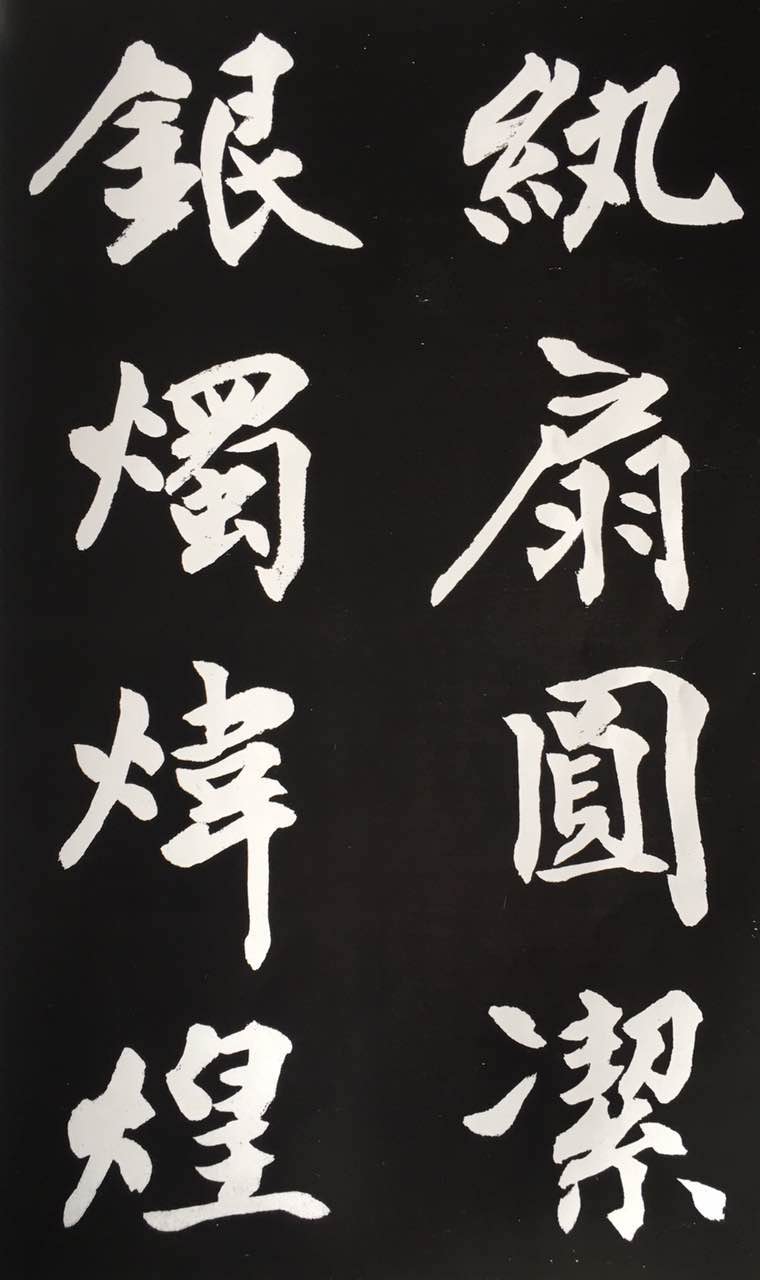 紈扇圓潔
銀燭煒煌